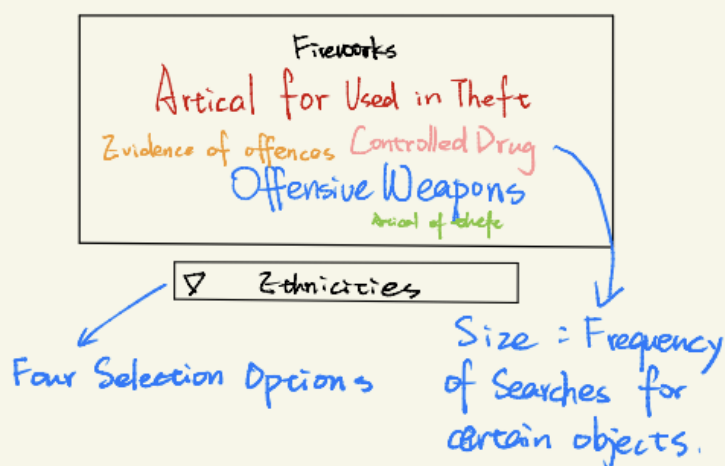 Fireworks
Artical for Used in Theft
Evidence of offences Controlled Drug
Offensive Weapons
Artical of thefe
▽ Ethnicities
Four Selection Options
Size = Frequency
of Searches for
certain objects.